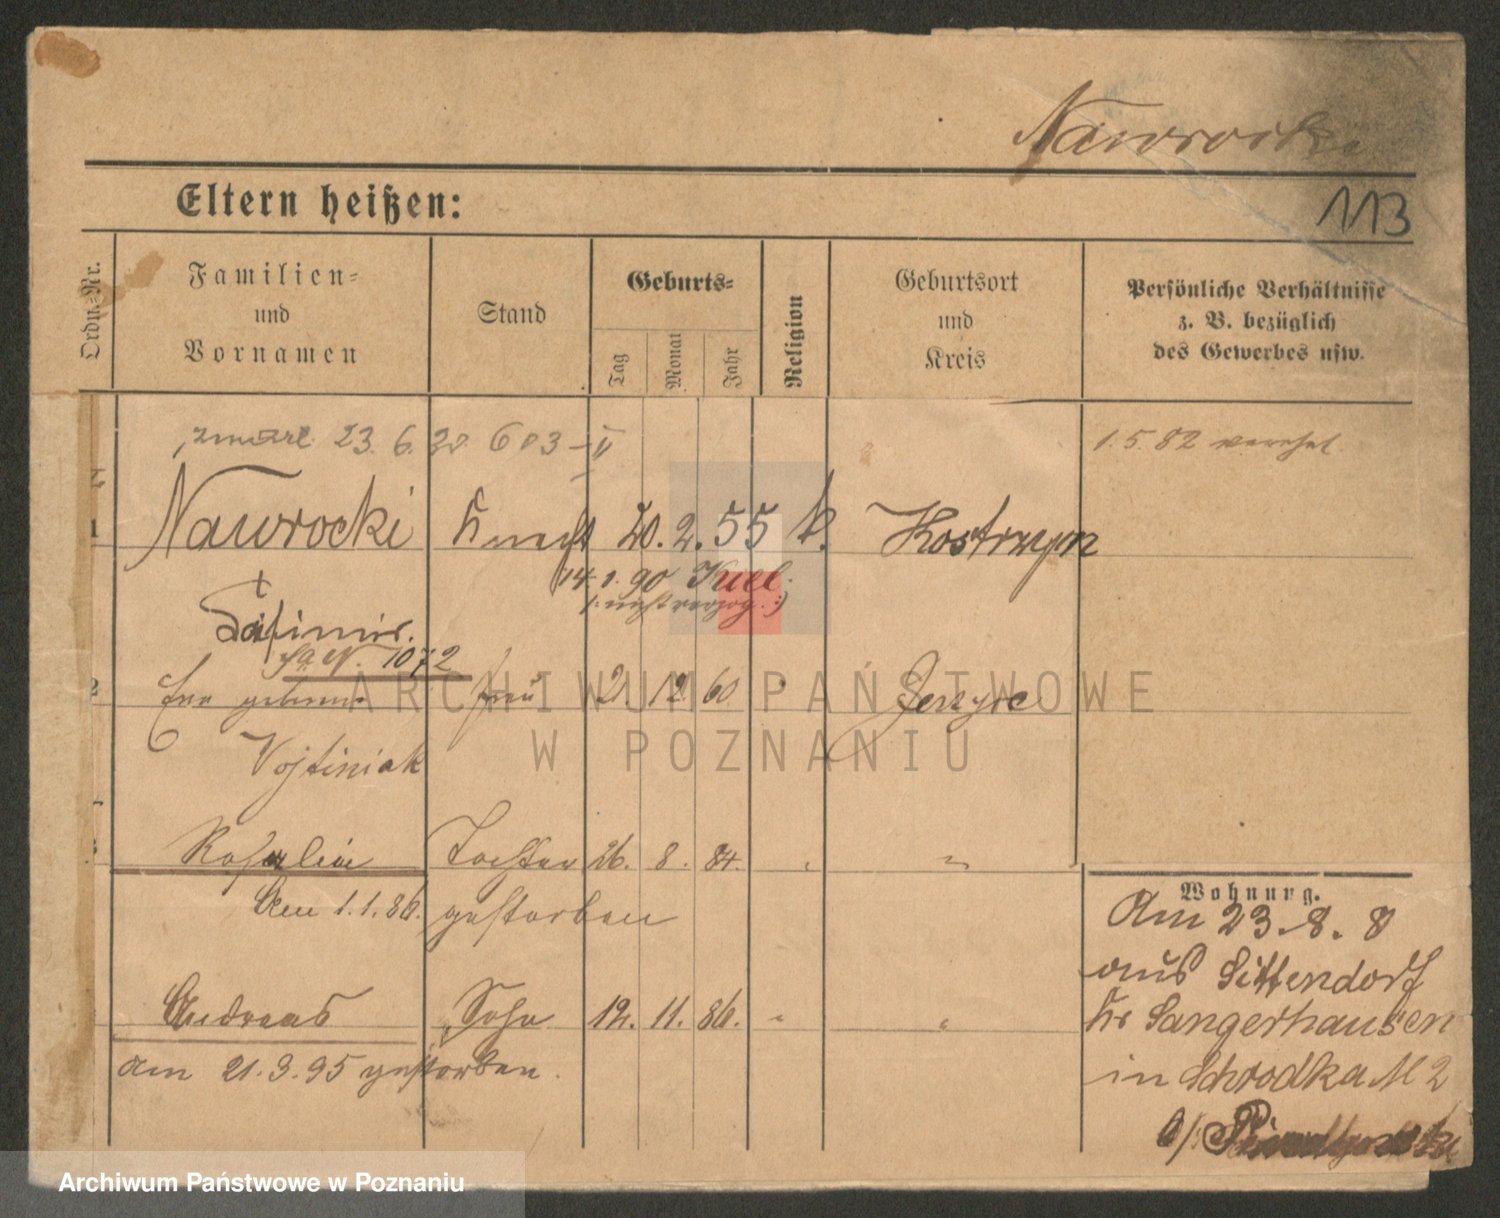 Nawrocki
113
Eltern heißen:
Ordn.-Nr.
Familien-
und
Vornamen
Stand
Geburts-
Tag
Monat
Jahr
Religion
Geburtsort
und
Kreis
Persönliche Verhältnisse
z. B. bezüglich
des Gewerbes usw.
zmarł 23. 6. 603 - II
1. 5. 82 verehel.
1 Nawrocki Knecht 20. 2. 55 k. Kostrzyn
14. 1. 90 Kiel.
(: nicht verzog. :)
Kasimir.
N. 1072
2 geborene Frau 21. 12. 60
Vojtiniak
Rosalie Tochter 26. 8. 84. "
Am 1. 1. 86. gestorben
Andreas Sohn 12. 11. 86. " "
am 21. 3. 95 gestorben.
Wohnung.
Am 23. 8. 8
aus Sittendorf
Kr Sangerhausen
in Schrodka M 2
b/
ARCHIWUM PAŃSTWOWE
W POZNANIU
Archiwum Państwowe w Poznaniu